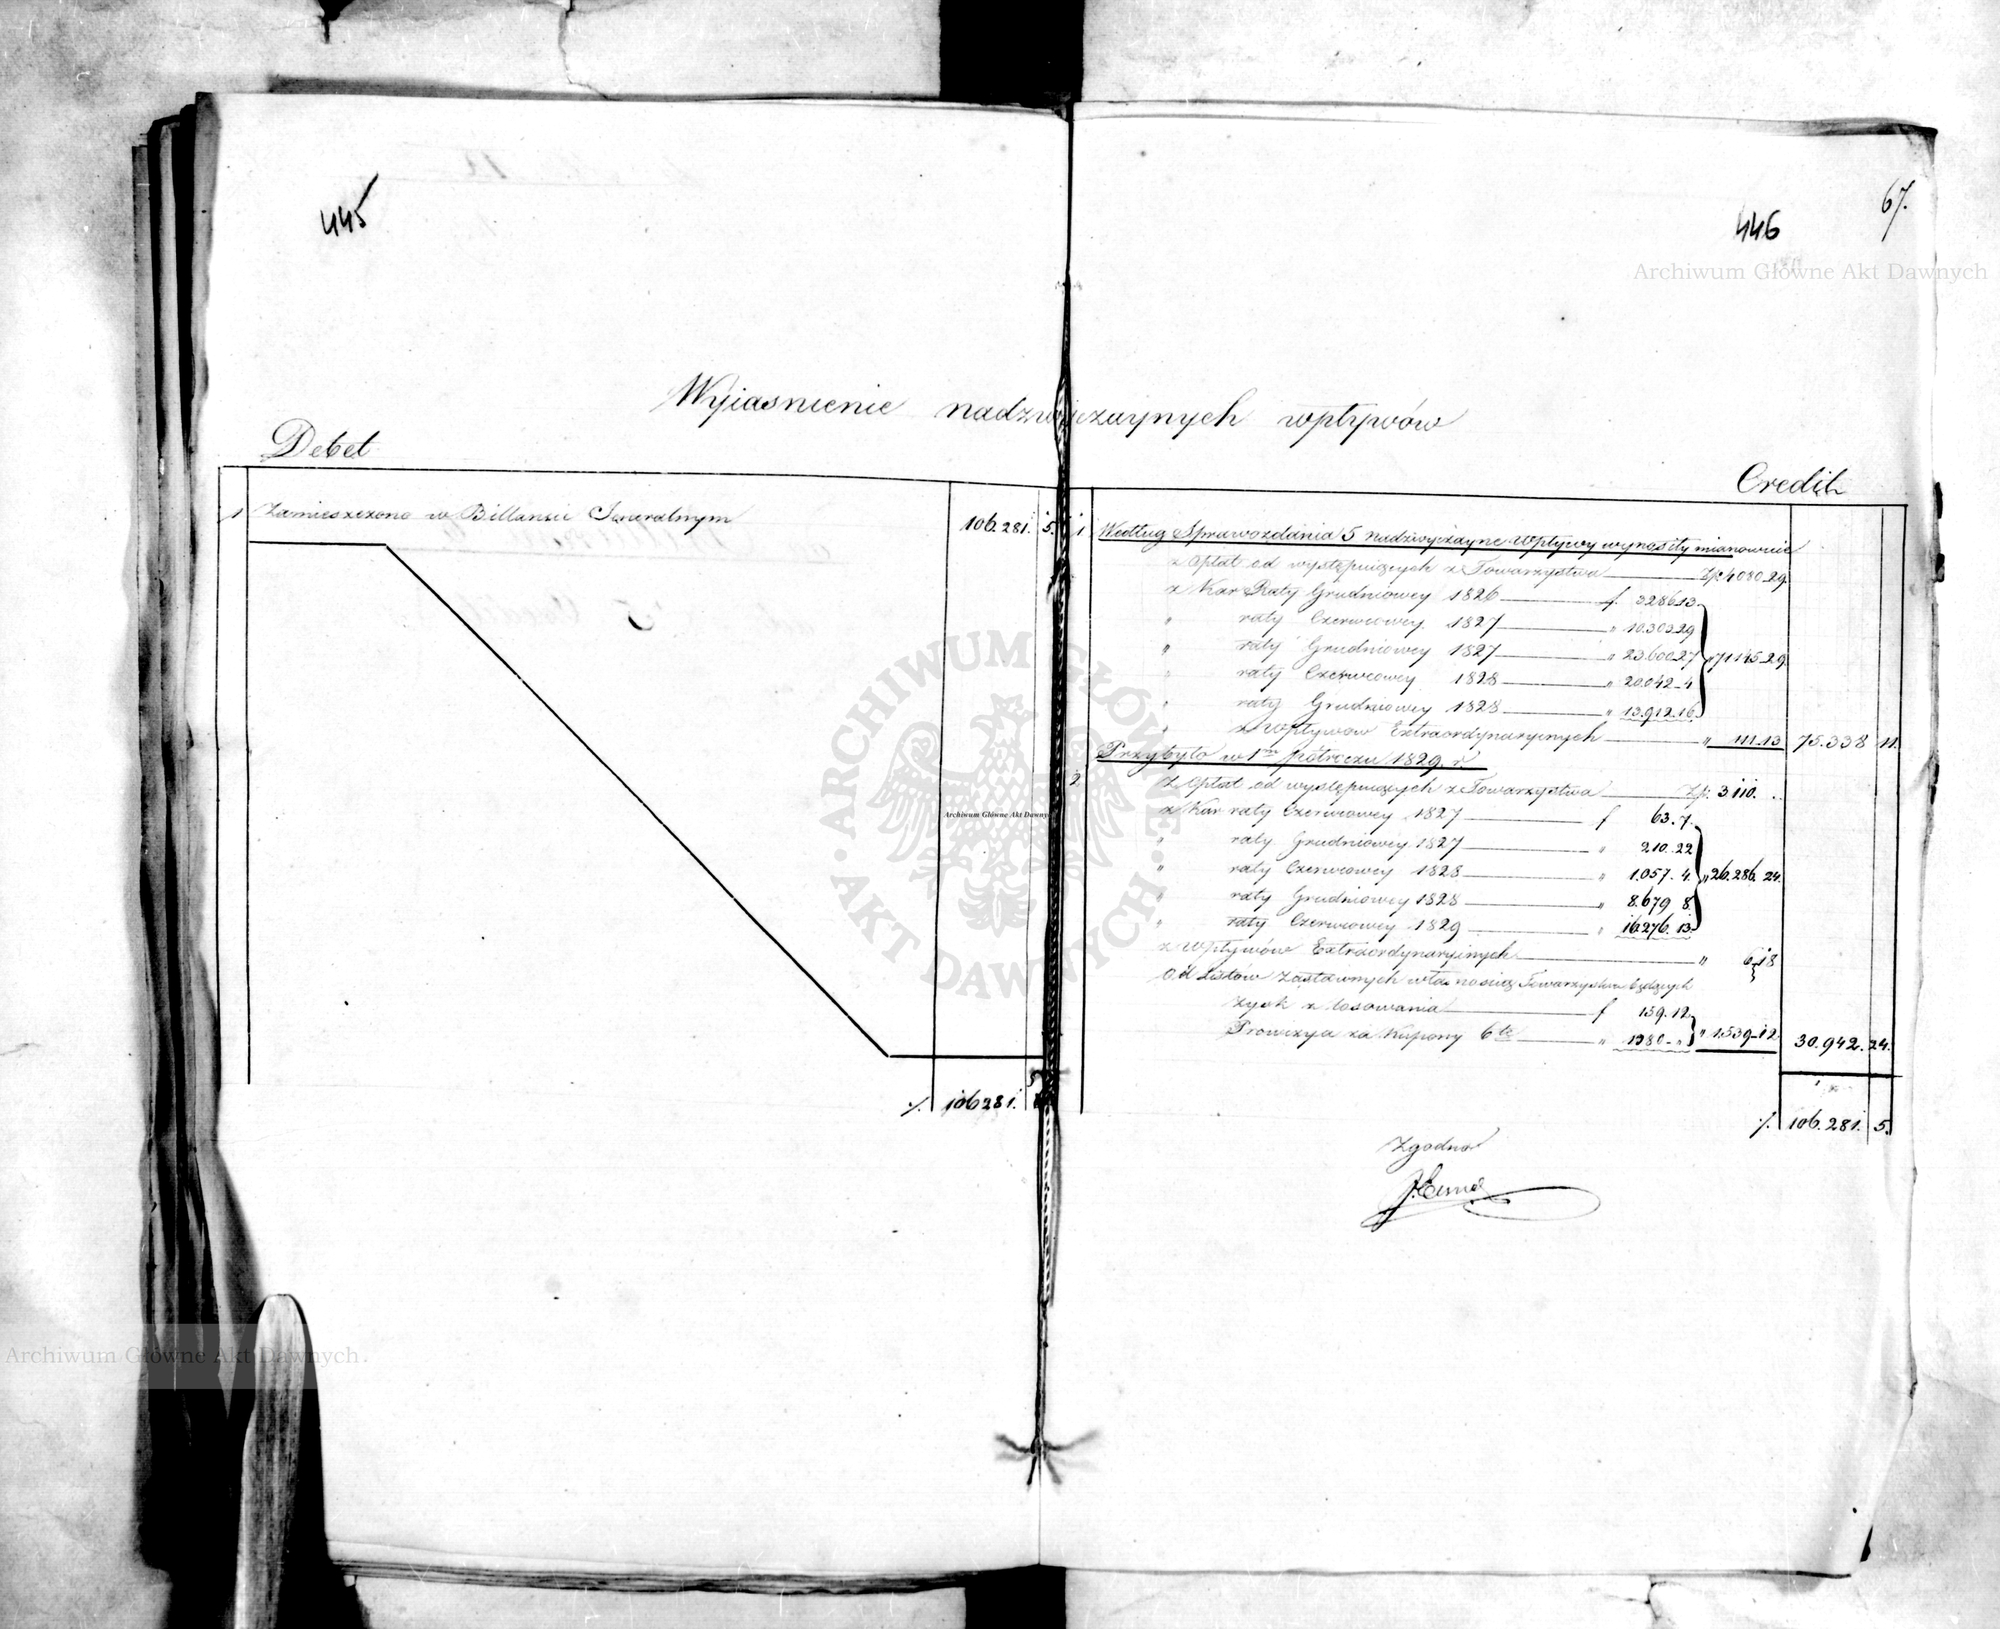 445
446
67.
Archiwum Główne Akt Dawnych
Wyiasnienie nadzwyczaynych wpływów
Debet
Credit
1 Zamieszczono w Billansie Generalnym 106.281. 5.
1 Według Sprawozdania 5 nadzwyczayne Wpływy wynosiły mianowicie
z Opłat od występuiących z Towarzystwa Zp. 4080.29.
z Kar Raty Grudniowey 1826 f. 3286.13.
" raty Czerwcowey 1827 " 10.303.29
" raty Grudniowey 1827 " 23.600.27 " 71145.29.
" raty Czerwcowey 1828 " 20.042.4
" raty Grudniowey 1828 " 13.912.16
" z Wpływów Extraordynaryinych " 111.13 75.338 11.
2 Przybyło w 1m półroczu 1829 r
z Opłat od występuiących z Towarzystwa Zp. 3110. ..
z Kar raty Czerwcowey 1827 f 63.7.
" raty Grudniowey 1827 " 210.22
" raty Czerwcowey 1828 " 1.057.4. " 26.286.24.
" raty Grudniowey 1828 " 8.679 8.
" raty Czerwcowey 1829 " 16.276.13.
z Wpływów Extraordynaryinych " 6.18
Od Listów Zastawnych własnością Towarzystwa będących
Zysk z losowania f 159.12.
Prowizya za Kupony 6te " 1380 " " 1.539.12 30.942.24.
./. 106281. 5
./. 106.281. 5.
Zgodno
ARCHIWUM GŁÓWNE AKT DAWNYCH
Archiwum Główne Akt Dawnych
Archiwum Główne Akt Dawnych